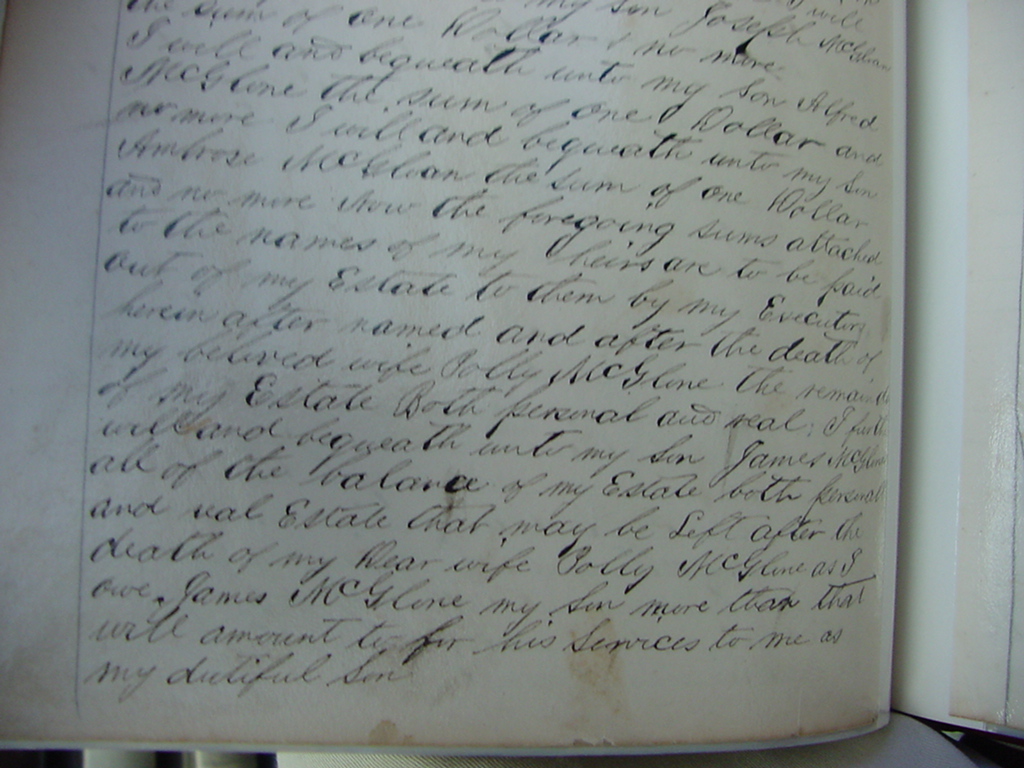 my son Joseph McGloan
the sum of one Dollar & no more
I will and bequeath unto my son Alfred
McGlone the sum of one Dollar and
no more I will and bequeath unto my son
Ambrose McGloan the sum of one Dollar
and no more Now the foregoing sums attached
to the names of my heirs are to be paid
out of my Estate to them by my Executor
herein after named and after the death of
my beloved wife Polly McGlone the remainde
of my Estate Both personal and real; I furth
will and bequeath unto my son James McGlone
all of the balance of my Estate both personal
and real Estate that may be Left after the
death of my Dear wife Polly McGlone as I
owe James McGlone my son more than that
will amount to for his Services to me as
my dutiful Son